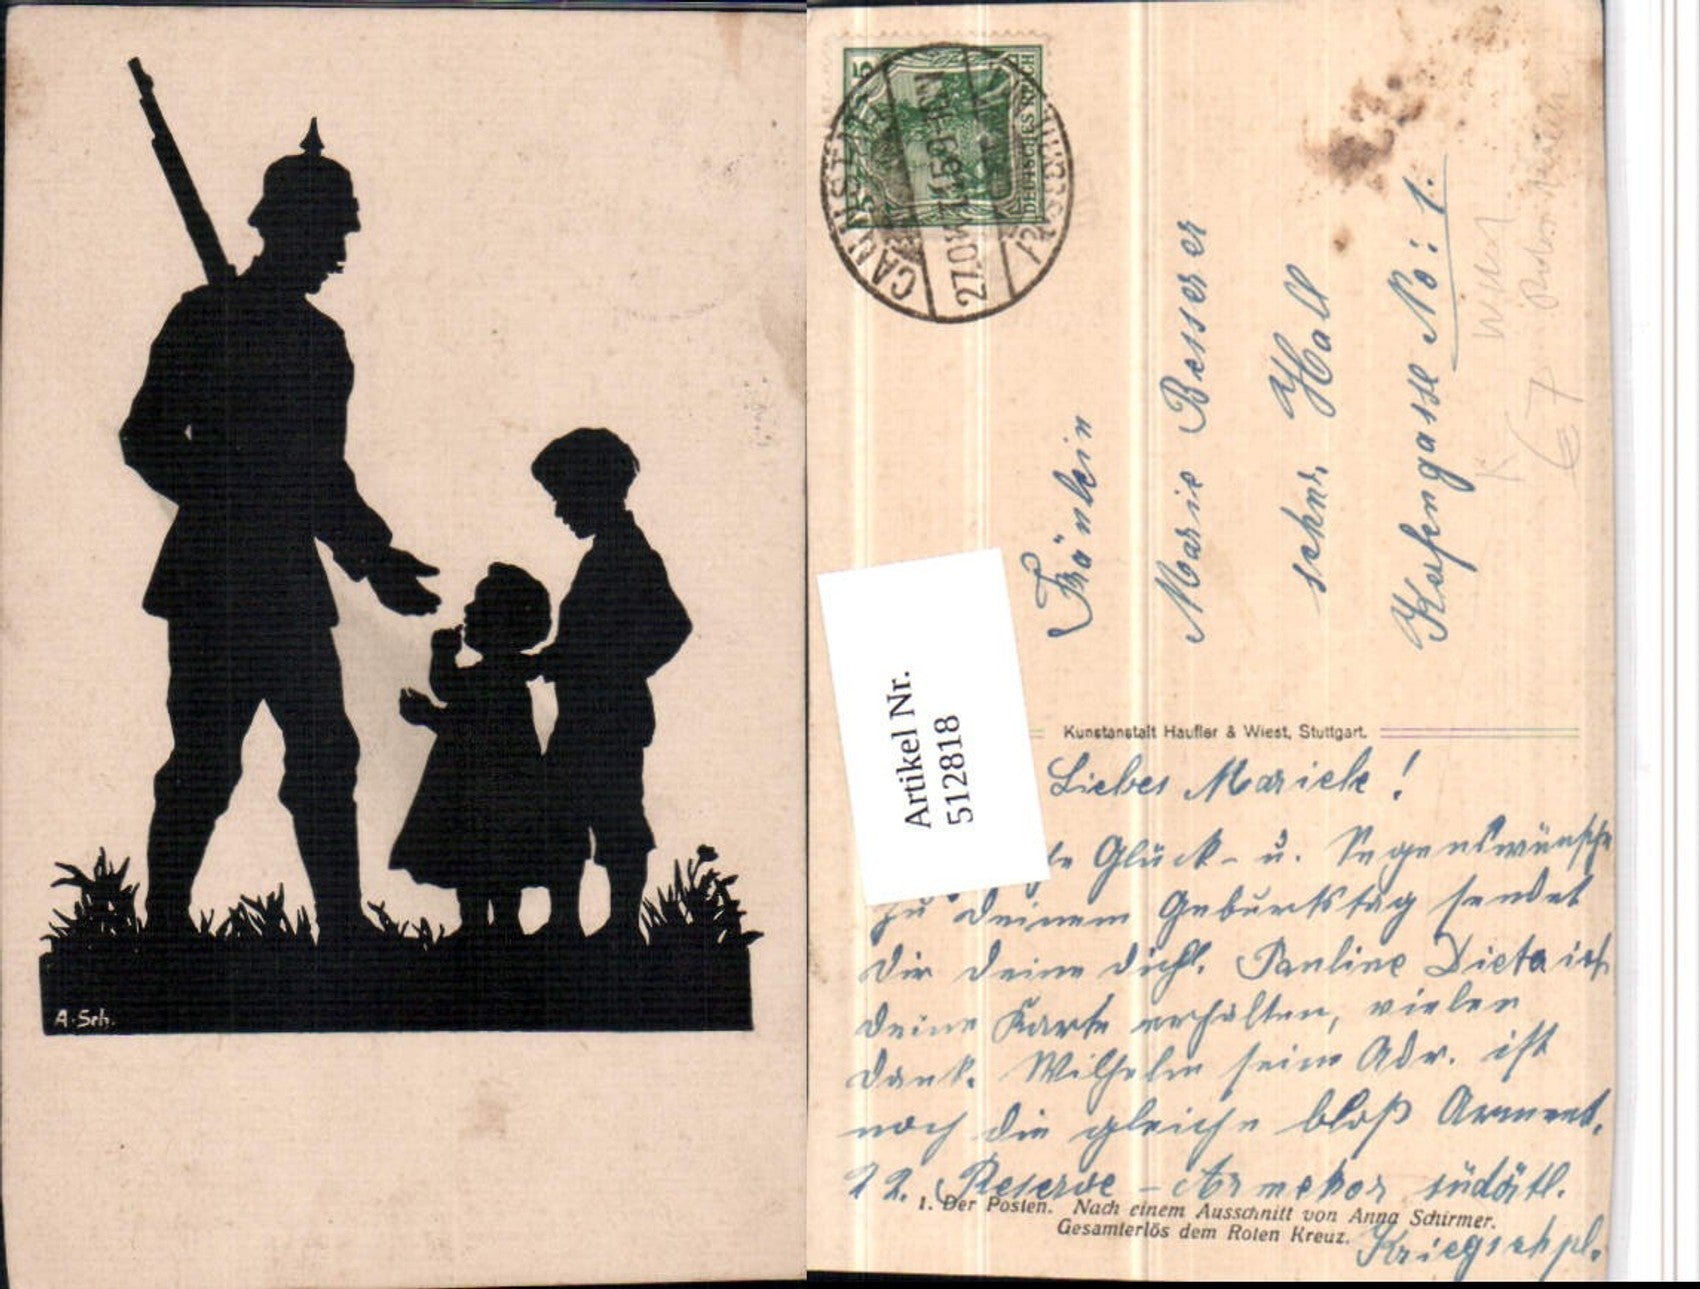 A. Sch.
DEUTSCHES REICH
5
CANNSTATT
27.10.15.8-9N.
Fräulein
Marie Besser
schw. Hall
Hafengasse No: 1.
Artikel Nr.
512818
Kunstanstalt Haufler & Wiest, Stuttgart.
Liebes Mariele!
Glück- u. Segenswünsche
zu deinem Geburtstag sendet
dir deine dichl. Pauline Dieterich
deine Karte erhalten, vielen
dank. Wilhelm seine Adr. ist
noch die gleiche bloß Armeent.
22. Reserve-Armekor südöstl.
Kriegschpl.
1. Der Posten. Nach einem Ausschnitt von Anna Schirmer.
Gesamterlös dem Roten Kreuz.